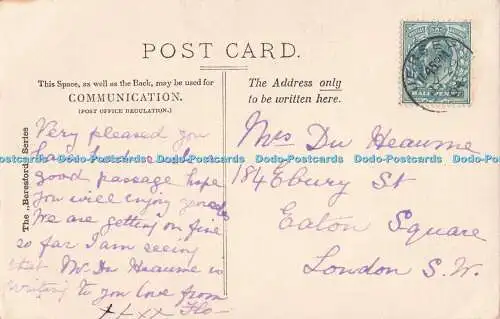 POST CARD.
This Space, as well as the Back, may be used for
COMMUNICATION.
(POST OFFICE REGULATION.)
The Address only
to be written here.
The „Beresford" Series
HALF PENNY
Very pleased you
have had such a
good passage hope
you will enjoy
We are getting on fine
so far I am seeing
that Mr Du Heaume is
writing to you love from
x x x x Flo
Mrs Du Heaume
184 Ebury St
Eaton Square
London S.W.
Dodo-Postcards Dodo-Postcards Dodo-Postcards Dodo-Postcards Dodo-Postcards